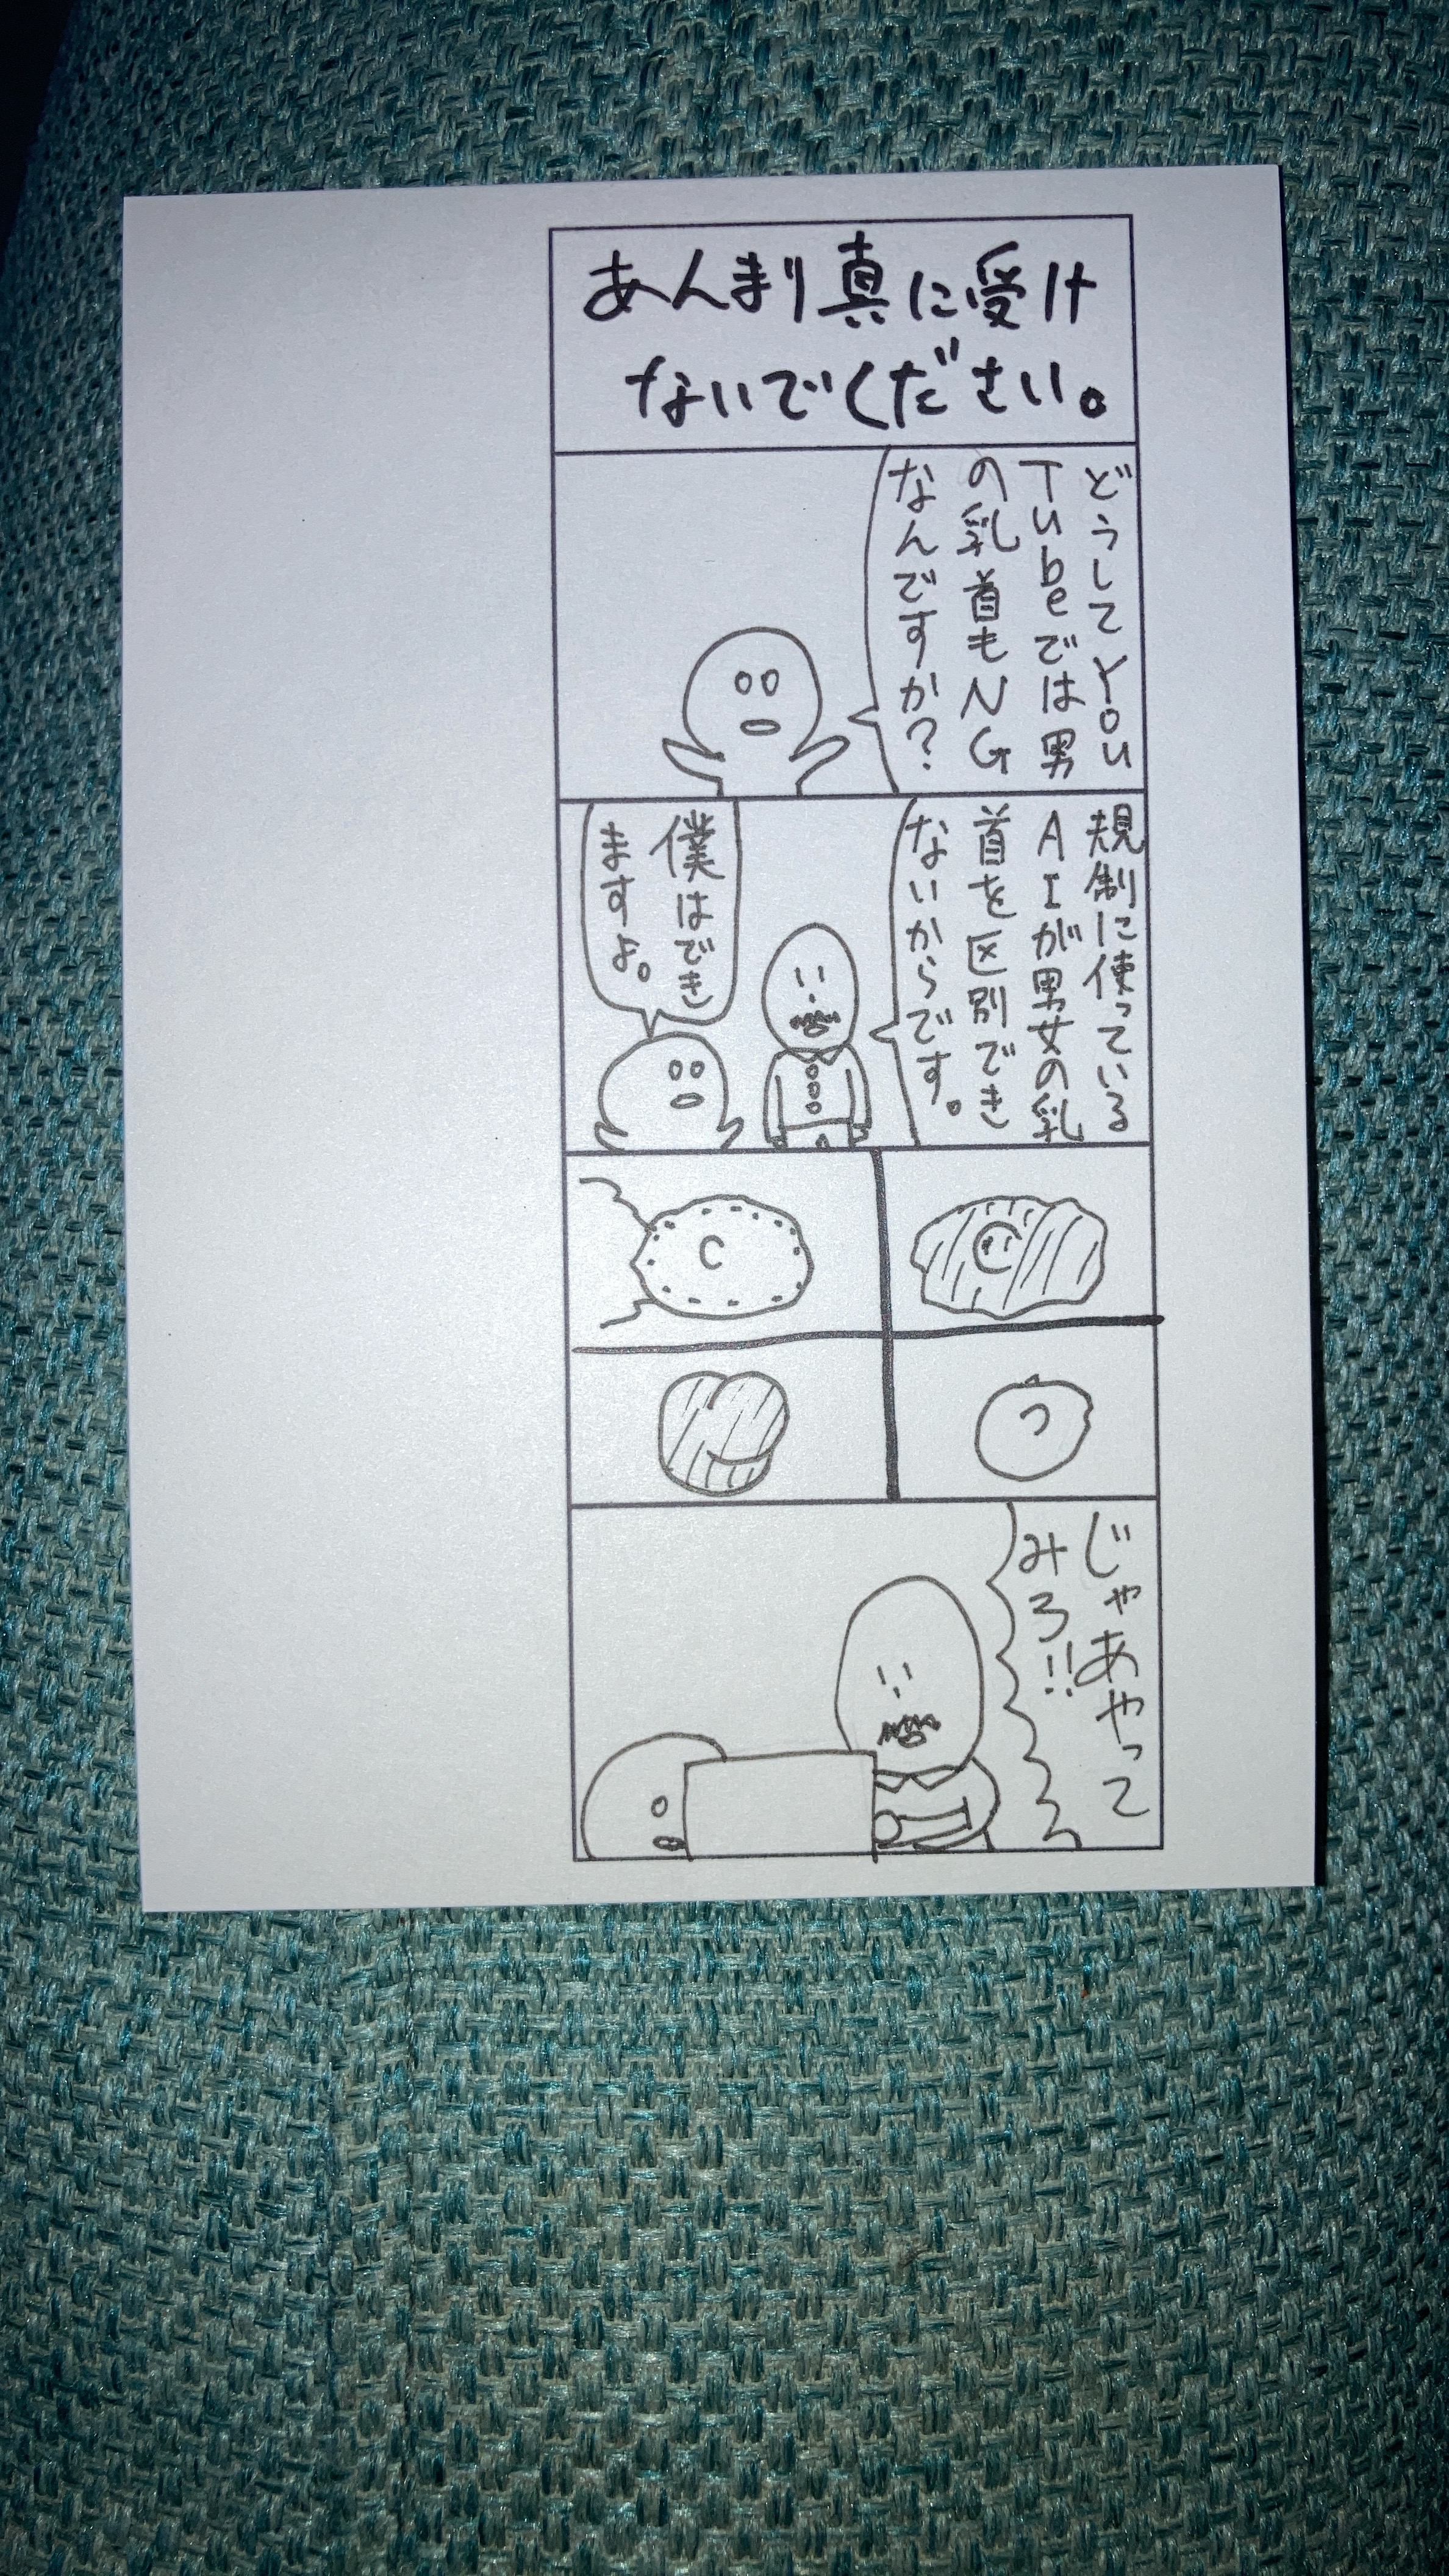 あんまり真に受け
ないでください。
どうしてYou
Tubeでは男
の乳首もNG
なんですか？
規制に使っている
AIが男女の乳
首を区別でき
ないからです。
僕はでき
ますよ。
じゃあやって
みろ!!